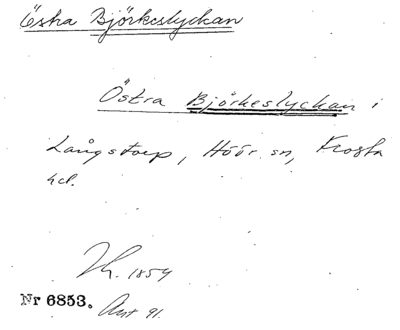 Östra Björkeslyckan
Östra Björkeslyckan i
Långstorp, Höör sn, Frosta
hd.
Lh. 1854
Nr 6853. Avt 91.